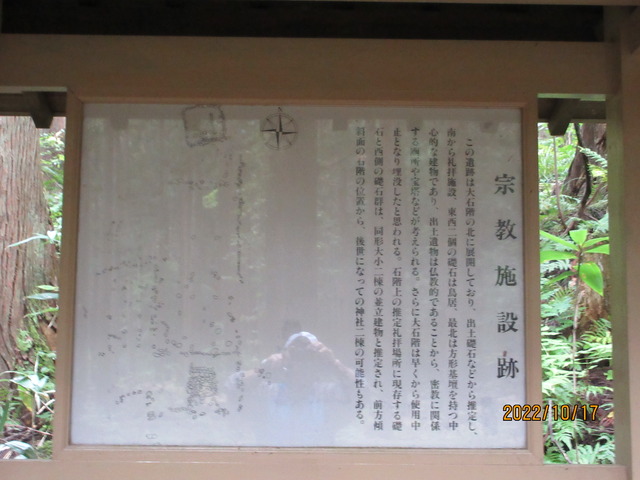 宗教施設跡
この遺跡は大石階の北に展開しており、出土礎石などから推定し、
南から礼拝施設、東西二個の礎石は鳥居、最北は方形基壇を持つ中
心的な建物であり、出土遺物は仏教的であることから、密教に関係
する画所や宝塔などが考えられる。さらに大石階は早くから使用中
止となり埋没したと思われる。石階上の推定礼拝場所に現存する礎
石と西側の礎石群は、同形大小二棟の並立建物と推定され、前方傾
斜面の石階の位置から、後世になっての神社二棟の可能性もある。
2022/10/17